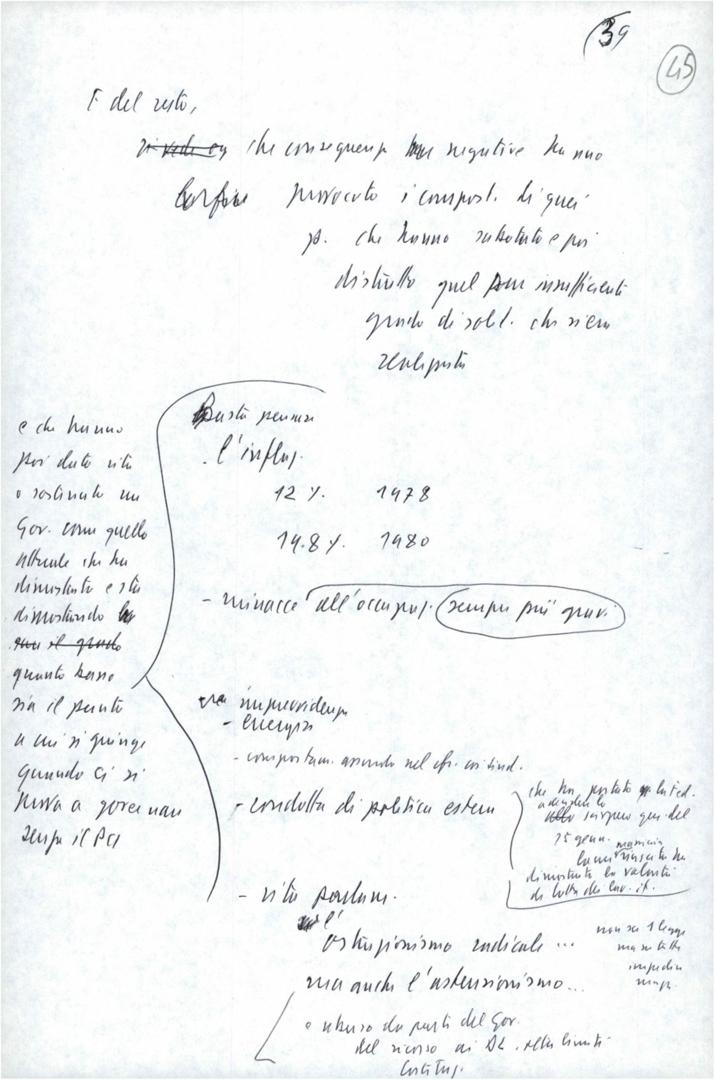 39
45
E del resto,
si vede og che conseguenze negative hanno
provocato i comport. di quei
p. che hanno sabotato e poi
distrutto quel pur insufficiente
grado di sol. che si era
realizzata
Basta pensare
l'inflaz.
12 %. 1978
19.8 %. 1980
- minacce all'occupaz. sempre più gravi
e che hanno
poi dato vita
o sostenuto un
Gov. come quello
attuale che ha
dimostrato e sta
dimostrando
quanto basso
sia il punto
a cui si giunge
quando ci si
prova a governare
senza il PCI
imprevidenza
- energia
- comportam. assurdo nel
- condotta di politica estera
che ha portato la Fed.
a decidere lo
sciopero gen. del
15 genn.
la cui massiccia riuscita ha
dimostrato la volontà
di lotta dei lav. it.
- vita parlam.
ostruzionismo radicale ...
non su 1 legge
ma su tutte
ma anche l'astensionismo...
e abuso da parte del Gov.
del ricorso ai DL oltre limiti
Costituz.